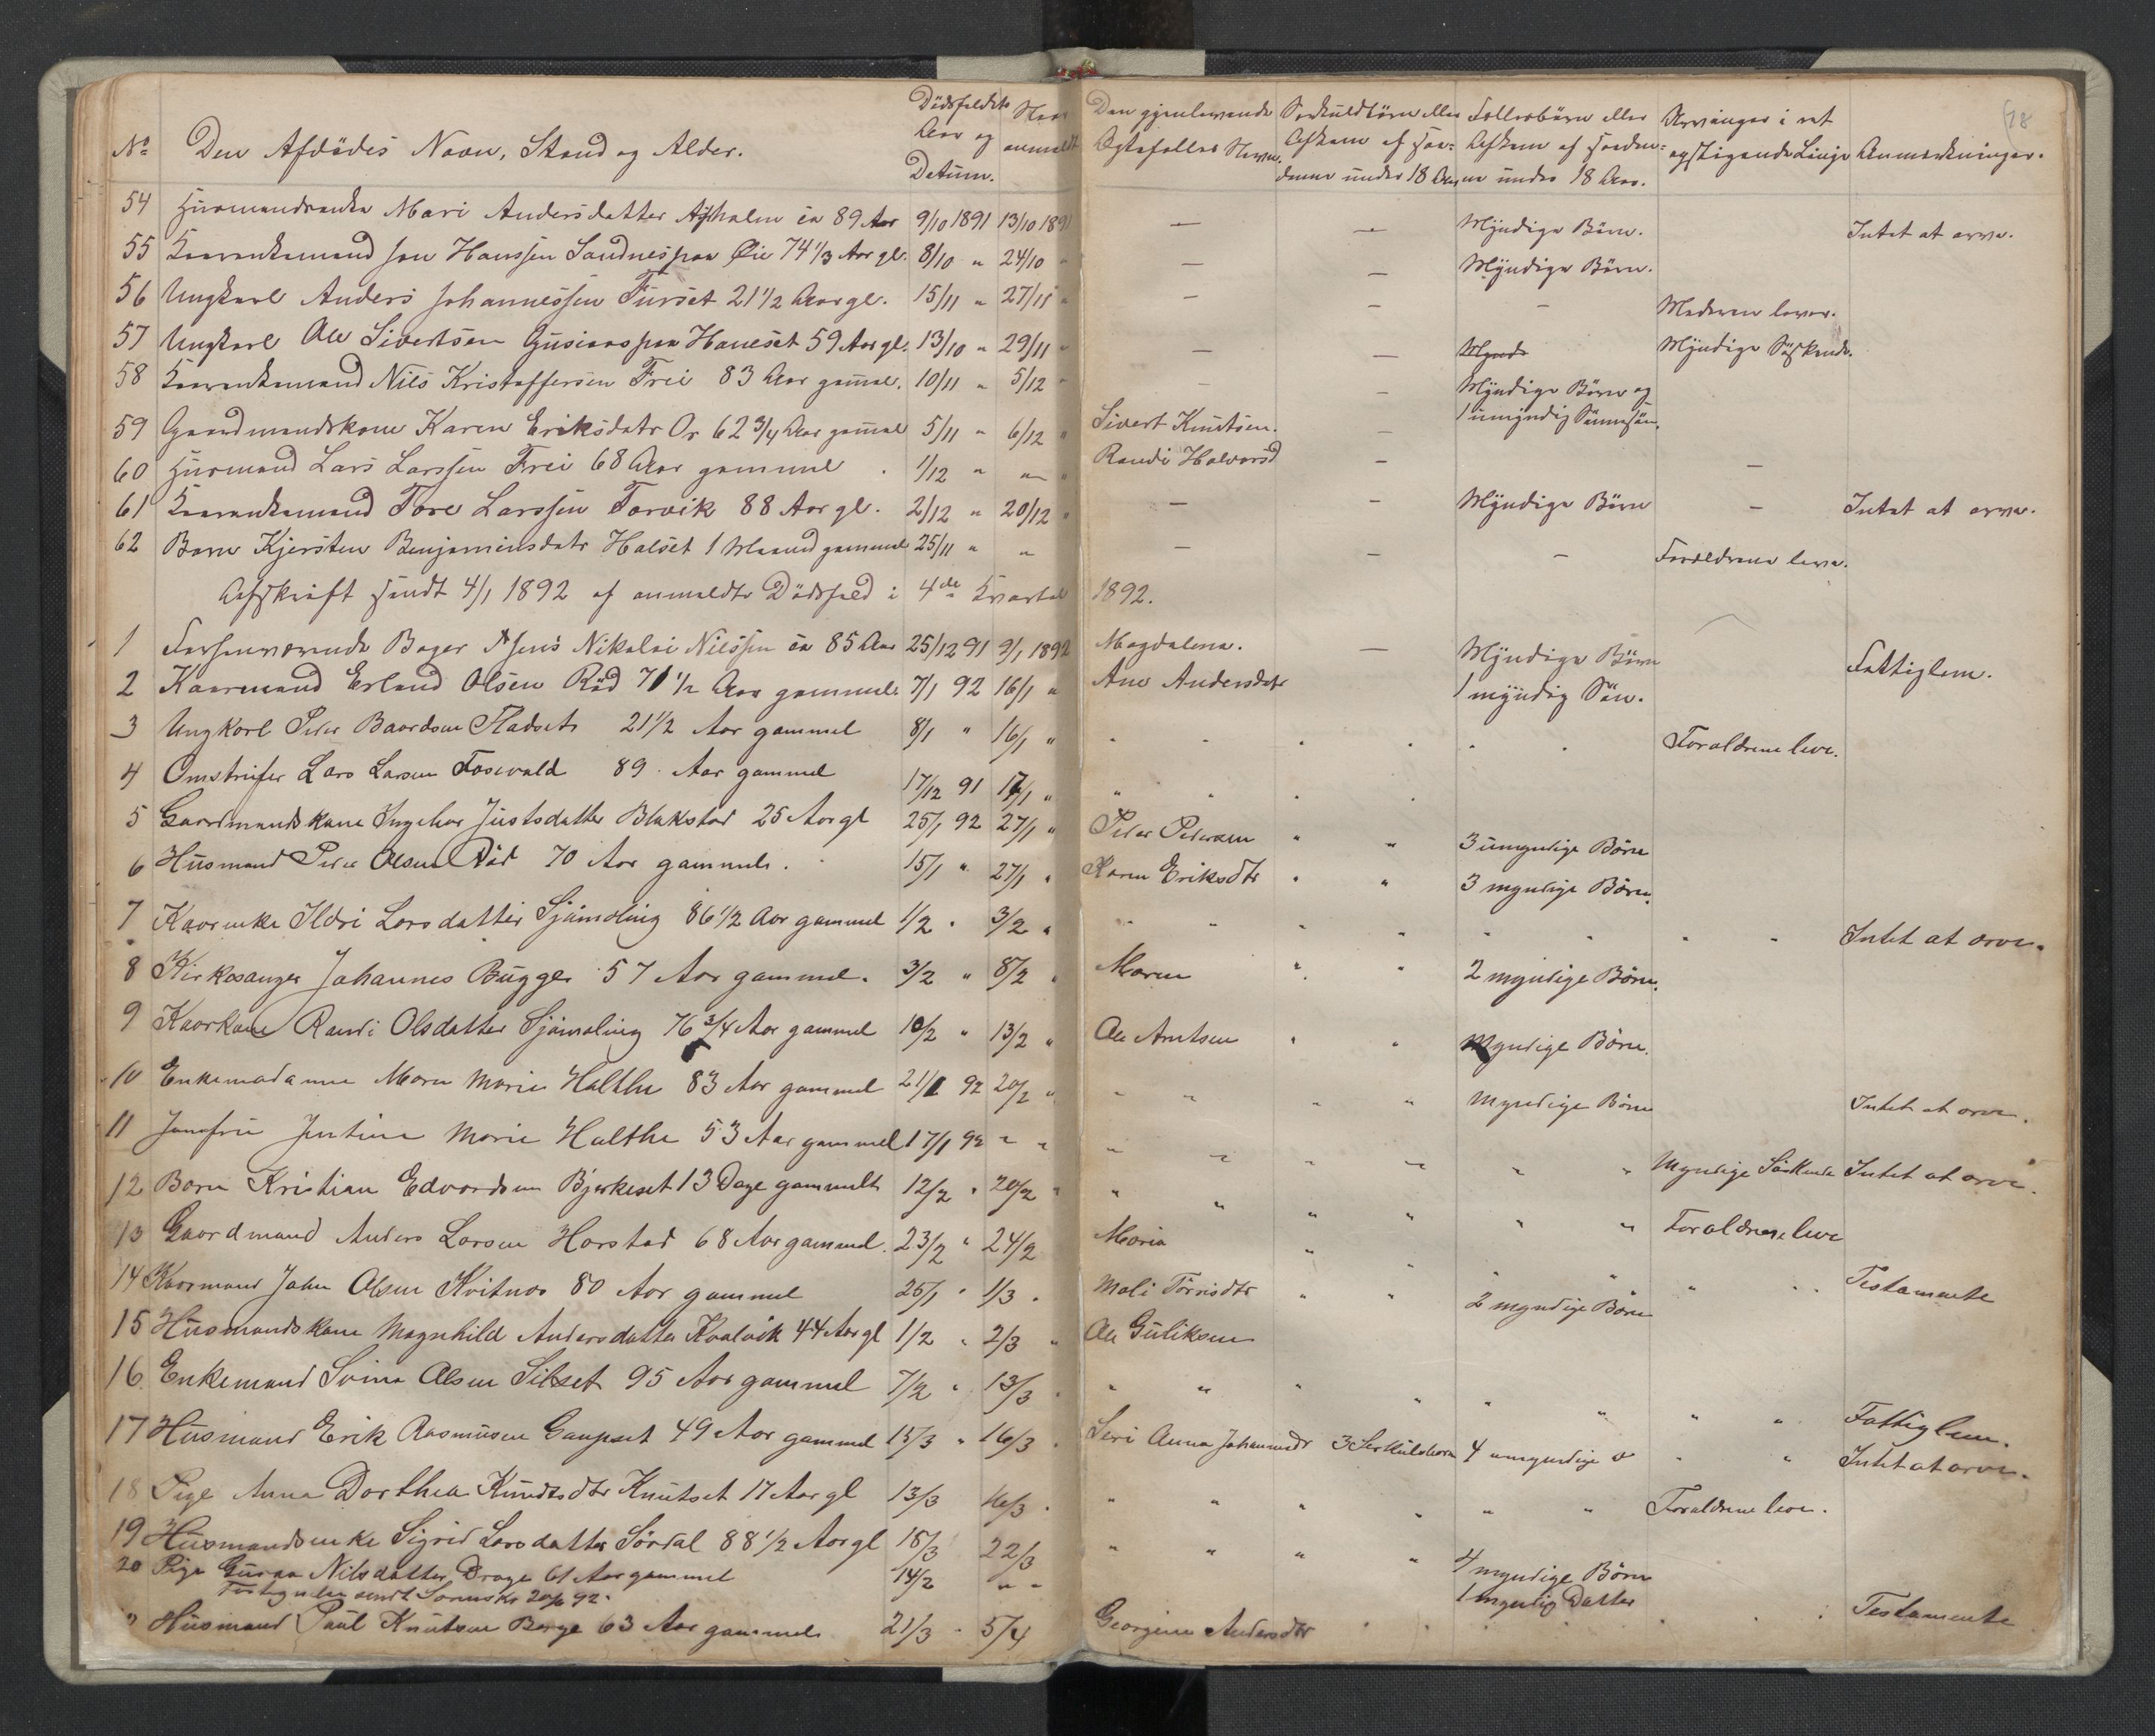 18
No Den Afdødes Navn, Stand og Alder. Dødsfaldets Aar og Datum. Naar anmeldt Den gjenlevende Ægtefælles Navn. Særkuldbørn eller Afkom af saadanne under 18 Aar Fællesbørn eller Afkom af saadanne under 18 Aar. Arvinger i ret opstigende Linje Anmærkninger.
54 Huusmandsenke Mari Andersdatter Aspholm ca 89 Aar 9/10 1891 13/10 1891 — — Myndige Børn. Intet at arve.
55 Kaarenkemand Jon Hanssen Sandnes paa Øie 74 1/3 Aar gl. 8/10 " 24/10 " — — Myndige Børn.
56 Ungkarl Anders Johannessen Furset 21 1/2 Aar gl. 15/11 " 27/11 " — — — Moderen lever.
57 Ungkarl Ole Sivertsen Gusiaas paa Haneset 59 Aar gl. 13/10 " 29/11 " — — Mynde Myndige Søskende.
58 Kaarenkemand Nils Kristoffersen Frei 83 Aar gammel. 10/11 " 5/12 " — — Myndige Børn og
1 umyndig Sønnesøn.
59 Gaardmandskone Karen Eriksdatr Or 62 3/4 Aar gammel 5/11 " 6/12 " Sivert Knutsen. —
60 Husmand Lars Larssen Frei 68 Aar gammel . 1/12 " " " Randi Halvorsd — —
61 Kaarenkemand Tore Larssen Torvik 88 Aar gl. 2/12 " 20/12 " — — Myndige Børn — Intet at arve.
62 Barn Kjersten Benjaminsdatr Halset 1 Maaned gammel 25/11 " " — — — Forældrene leve.
Afskrift sendt 4/1 1892 af anmeldte Dødsfald i 4de Kvartal 1892.
1 Forhenværende Bager Jens Nikolai Nilssen ca 85 Aar 25/12 91 9/1 1892 Magdalena. — Myndige Børn Fattiglem.
2 Kaarmand Erland Olsen Rød 71 1/2 Aar gammel 7/1 92 16/1 " Ane Andersdatr 1 myndig Søn.
3 Ungkarl Peder Baardsen Fladset 21 1/2 Aar gammel 8/1 " 16/1 " Forældrene leve.
4 Omstreifer Lars Larsen Fosevald 89 Aar gammel 17/12 91 17/1 "
5 Gaardmandskone Ingebor Justsdatter Blakstad 25 Aar gl 25/1 92 27/1 " Peder Pedersen " " 3 umyndige Børn
6 Husmand Peder Olsen Rød 70 Aar gammel. 15/1 " 27/1 " Karen Eriksdtr " " 3 myndige Børn.
7 Kaarenke Ildri Larsdatter Sjømoling 86 1/2 Aar gammel 1/2 " 3/2 " Intet at arve.
8 Kirkesanger Johannes Bugge 57 Aar gammel. 3/2 " 8/2 " Maren " " 2 myndige Børn.
9 Kaarkone Randi Olsdatter Sjømoling 76 3/4 Aar gammel 10/2 " 13/2 " Ole Arntsen " " Myndige Børn.
10 Enkemadame Maren Marie Holthe 83 Aar gammel 21/1 92 20/2 " Myndige Børn Intet at arve.
11 Jomfru Justine Marie Holthe 53 Aar gammel 17/1 92 " " Myndige Søskende Intet at arve.
12 Barn Kristian Edvardsen Bjerkeset 13 Dage gammelt 12/2 " 20/2 " Forældrene leve
13 Gaardmand Anders Larsen Harstad 68 Aar gammel. 23/2 " 24/2 Maria Testamente
14 Kaarmand John Olsen Kvitnes 80 Aar gammel 25/1 " 1/3 " Mali Tørrisdtr " " 2 myndige Børn
15 Husmandskone Magnhild Andersdatter Kvalvik 44 Aar gl 1/2 " 2/3 " Ole Guliksen
16 Enkemand Olsen Silset 95 Aar gammel 7/2 " 13/3 Fattiglem.
17 Husmand Erik Rasmusen Gaupset 49 Aar gammel 15/3 " 16/3 " Siri Anna Johannesdr 3 Særkulsbørn 4 umyndige Intet at arve.
18 Pige Anna Dorthea Knudtsdtr Knutset 17 Aar gl 13/3 16/3 " Forældrene leve.
19 Husmandsenke Sigrid Larsdatter Sørdal 88 1/2 Aar gl 15/3 22/3 4 myndige Børn
20 Pige Guraa Nilsdatter Drage 61 Aar gammel 14/2 " " 1 myndig Datter
sendt 92.
" Husmand Paul Knutsen Berge 63 Aar gammel 21/3 " 5/4 Georgine Andersdtr Testamente